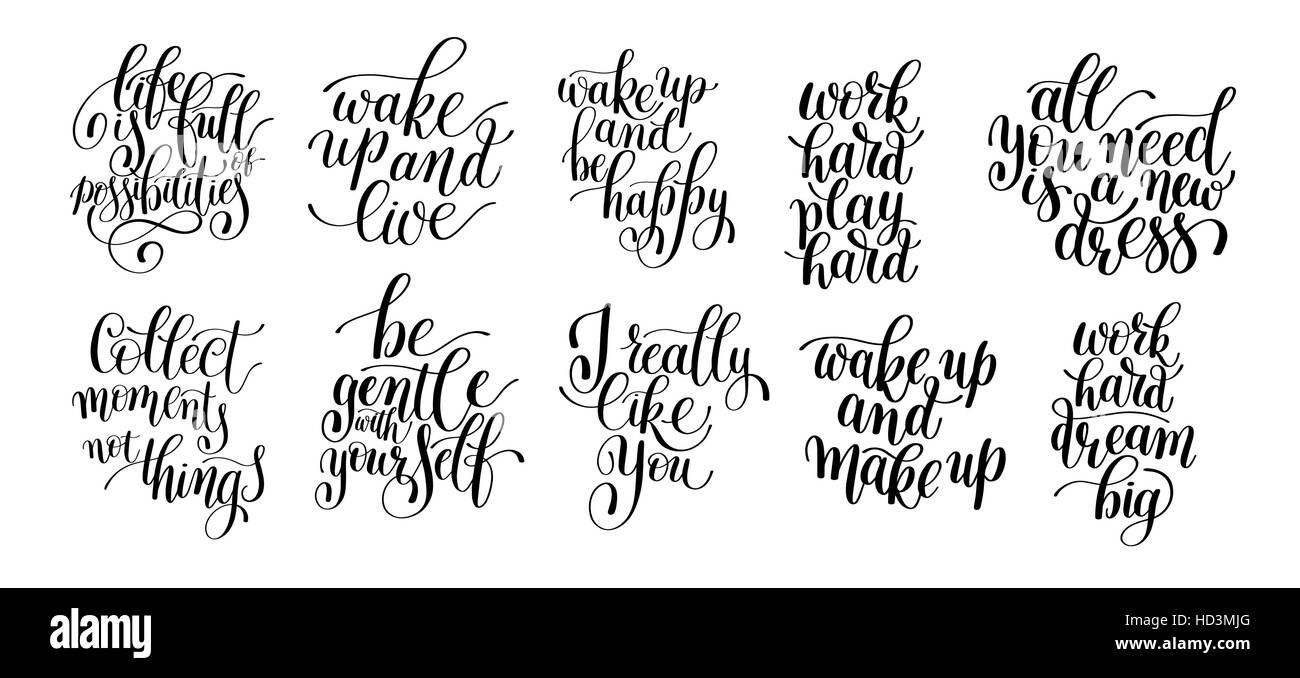 life
is full
of
possibilities
wake
up and
live
wake up
and
be
happy
work
hard
play
hard
all
you need
is a new
dress
Collect
moments
not
things
be
gentle
with
yourself
I really
like
you
wake up
and
make up
work
hard
dream
big
alamy
Image ID: HD3MJG
www.alamy.com